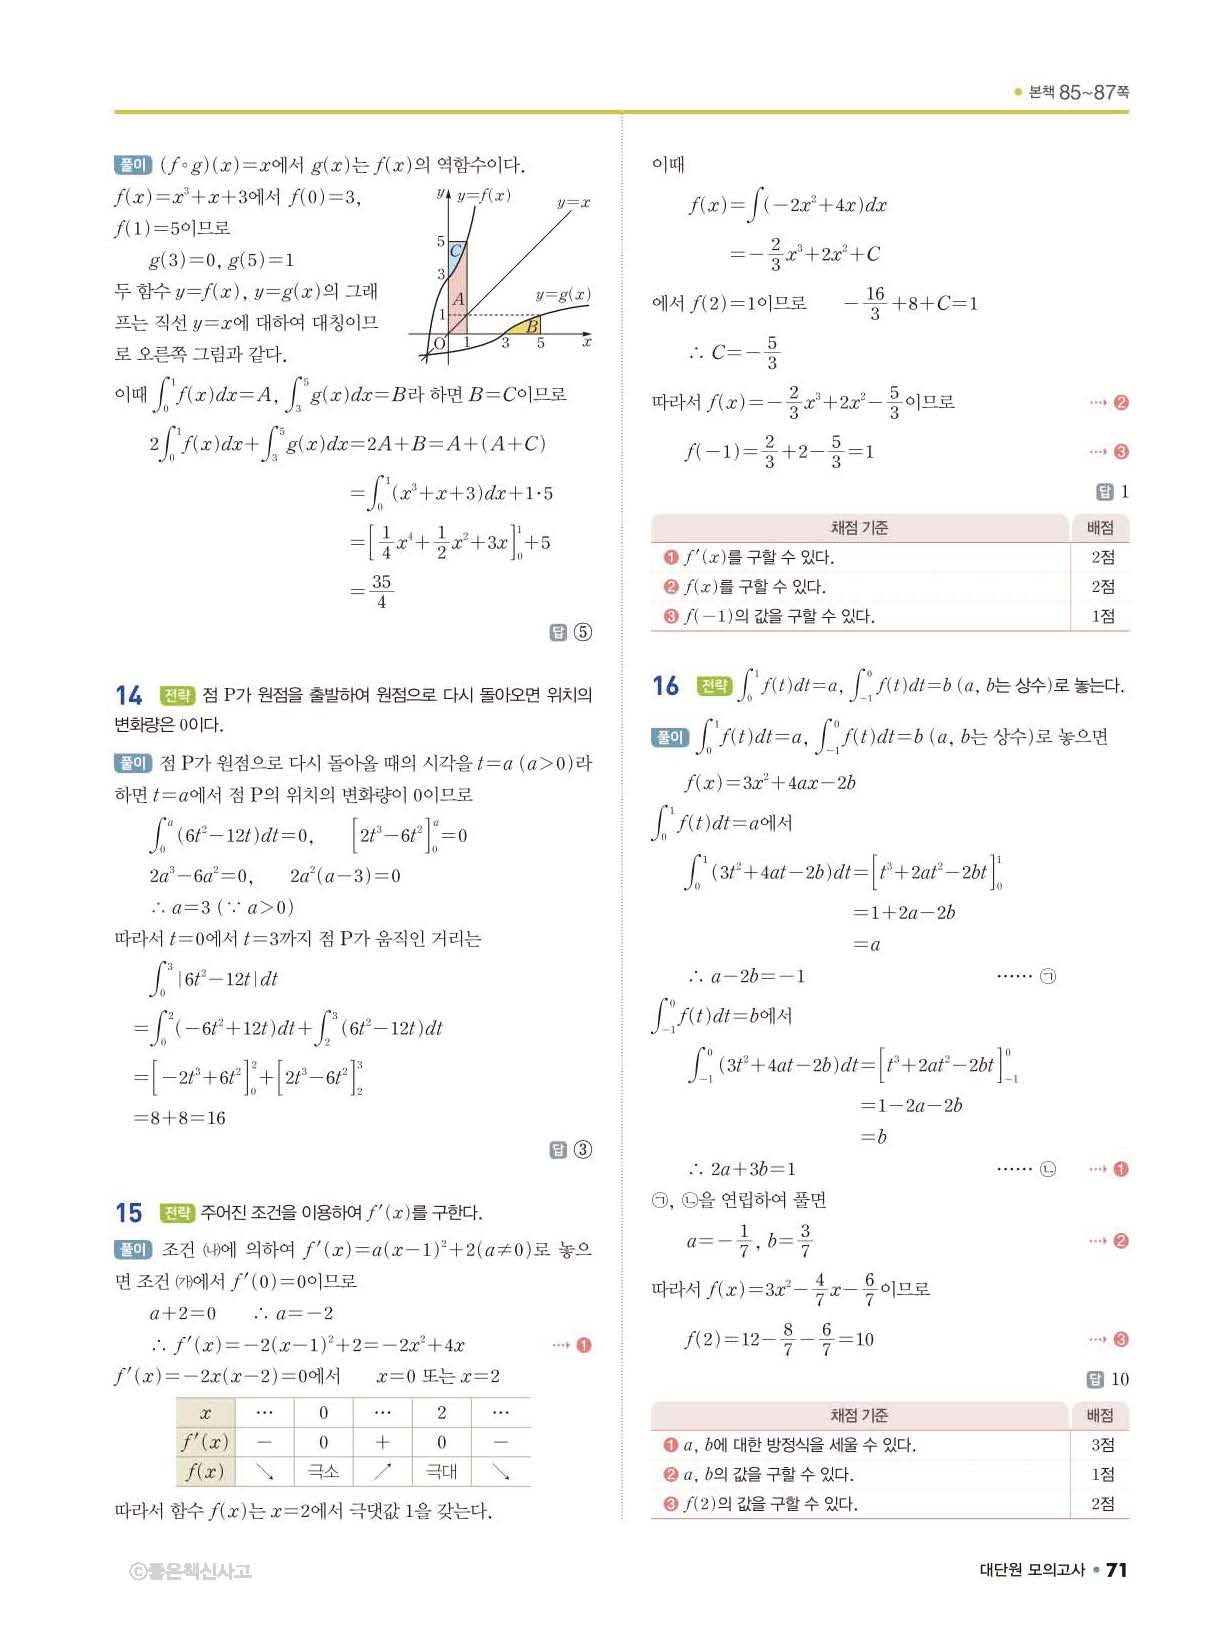 본책 85~87쪽
풀이 (f∘g)(x)=x에서 g(x)는 f(x)의 역함수이다.
f(x)=x³+x+3에서 f(0)=3,
f(1)=5이므로
g(3)=0, g(5)=1
두 함수 y=f(x), y=g(x)의 그래
프는 직선 y=x에 대하여 대칭이므
로 오른쪽 그림과 같다.
y y=f(x) y=x
5 C
3
A y=g(x)
1 B
O 1 3 5 x
이때 ∫₀¹ f(x)dx=A, ∫₃⁵ g(x)dx=B라 하면 B=C이므로
2∫₀¹ f(x)dx+∫₃⁵ g(x)dx=2A+B=A+(A+C)
=∫₀¹ (x³+x+3)dx+1·5
=[1/4 x⁴+1/2 x²+3x]₀¹+5
=35/4
답 ⑤
14 전략 점 P가 원점을 출발하여 원점으로 다시 돌아오면 위치의
변화량은 0이다.
풀이 점 P가 원점으로 다시 돌아올 때의 시각을 t=a (a>0)라
하면 t=a에서 점 P의 위치의 변화량이 0이므로
∫₀ᵃ (6t²-12t)dt=0, [2t³-6t²]₀ᵃ=0
2a³-6a²=0, 2a²(a-3)=0
∴ a=3 (∵ a>0)
따라서 t=0에서 t=3까지 점 P가 움직인 거리는
∫₀³ |6t²-12t|dt
=∫₀² (-6t²+12t)dt+∫₂³ (6t²-12t)dt
=[-2t³+6t²]₀²+[2t³-6t²]₂³
=8+8=16
답 ③
15 전략 주어진 조건을 이용하여 f'(x)를 구한다.
풀이 조건 ㈏에 의하여 f'(x)=a(x-1)²+2(a≠0)로 놓으
면 조건 ㈎에서 f'(0)=0이므로
a+2=0 ∴ a=-2
∴ f'(x)=-2(x-1)²+2=-2x²+4x ···› ❶
f'(x)=-2x(x-2)=0에서 x=0 또는 x=2
x … 0 … 2 …
f'(x) - 0 + 0 -
f(x) ↘ 극소 ↗ 극대 ↘
따라서 함수 f(x)는 x=2에서 극댓값 1을 갖는다.
이때
f(x)=∫(-2x²+4x)dx
=-2/3 x³+2x²+C
에서 f(2)=1이므로 -16/3+8+C=1
∴ C=-5/3
따라서 f(x)=-2/3 x³+2x²-5/3이므로 ···› ❷
f(-1)=2/3+2-5/3=1 ···› ❸
답 1
채점 기준 배점
❶ f'(x)를 구할 수 있다. 2점
❷ f(x)를 구할 수 있다. 2점
❸ f(-1)의 값을 구할 수 있다. 1점
16 전략 ∫₀¹ f(t)dt=a, ∫₋₁⁰ f(t)dt=b (a, b는 상수)로 놓는다.
풀이 ∫₀¹ f(t)dt=a, ∫₋₁⁰ f(t)dt=b (a, b는 상수)로 놓으면
f(x)=3x²+4ax-2b
∫₀¹ f(t)dt=a에서
∫₀¹ (3t²+4at-2b)dt=[t³+2at²-2bt]₀¹
=1+2a-2b
=a
∴ a-2b=-1 …… ㉠
∫₋₁⁰ f(t)dt=b에서
∫₋₁⁰ (3t²+4at-2b)dt=[t³+2at²-2bt]₋₁⁰
=1-2a-2b
=b
∴ 2a+3b=1 …… ㉡ ···› ❶
㉠, ㉡을 연립하여 풀면
a=-1/7, b=3/7 ···› ❷
따라서 f(x)=3x²-4/7 x-6/7이므로
f(2)=12-8/7-6/7=10 ···› ❸
답 10
채점 기준 배점
❶ a, b에 대한 방정식을 세울 수 있다. 3점
❷ a, b의 값을 구할 수 있다. 1점
❸ f(2)의 값을 구할 수 있다. 2점
ⓒ좋은책신사고
대단원 모의고사 • 71